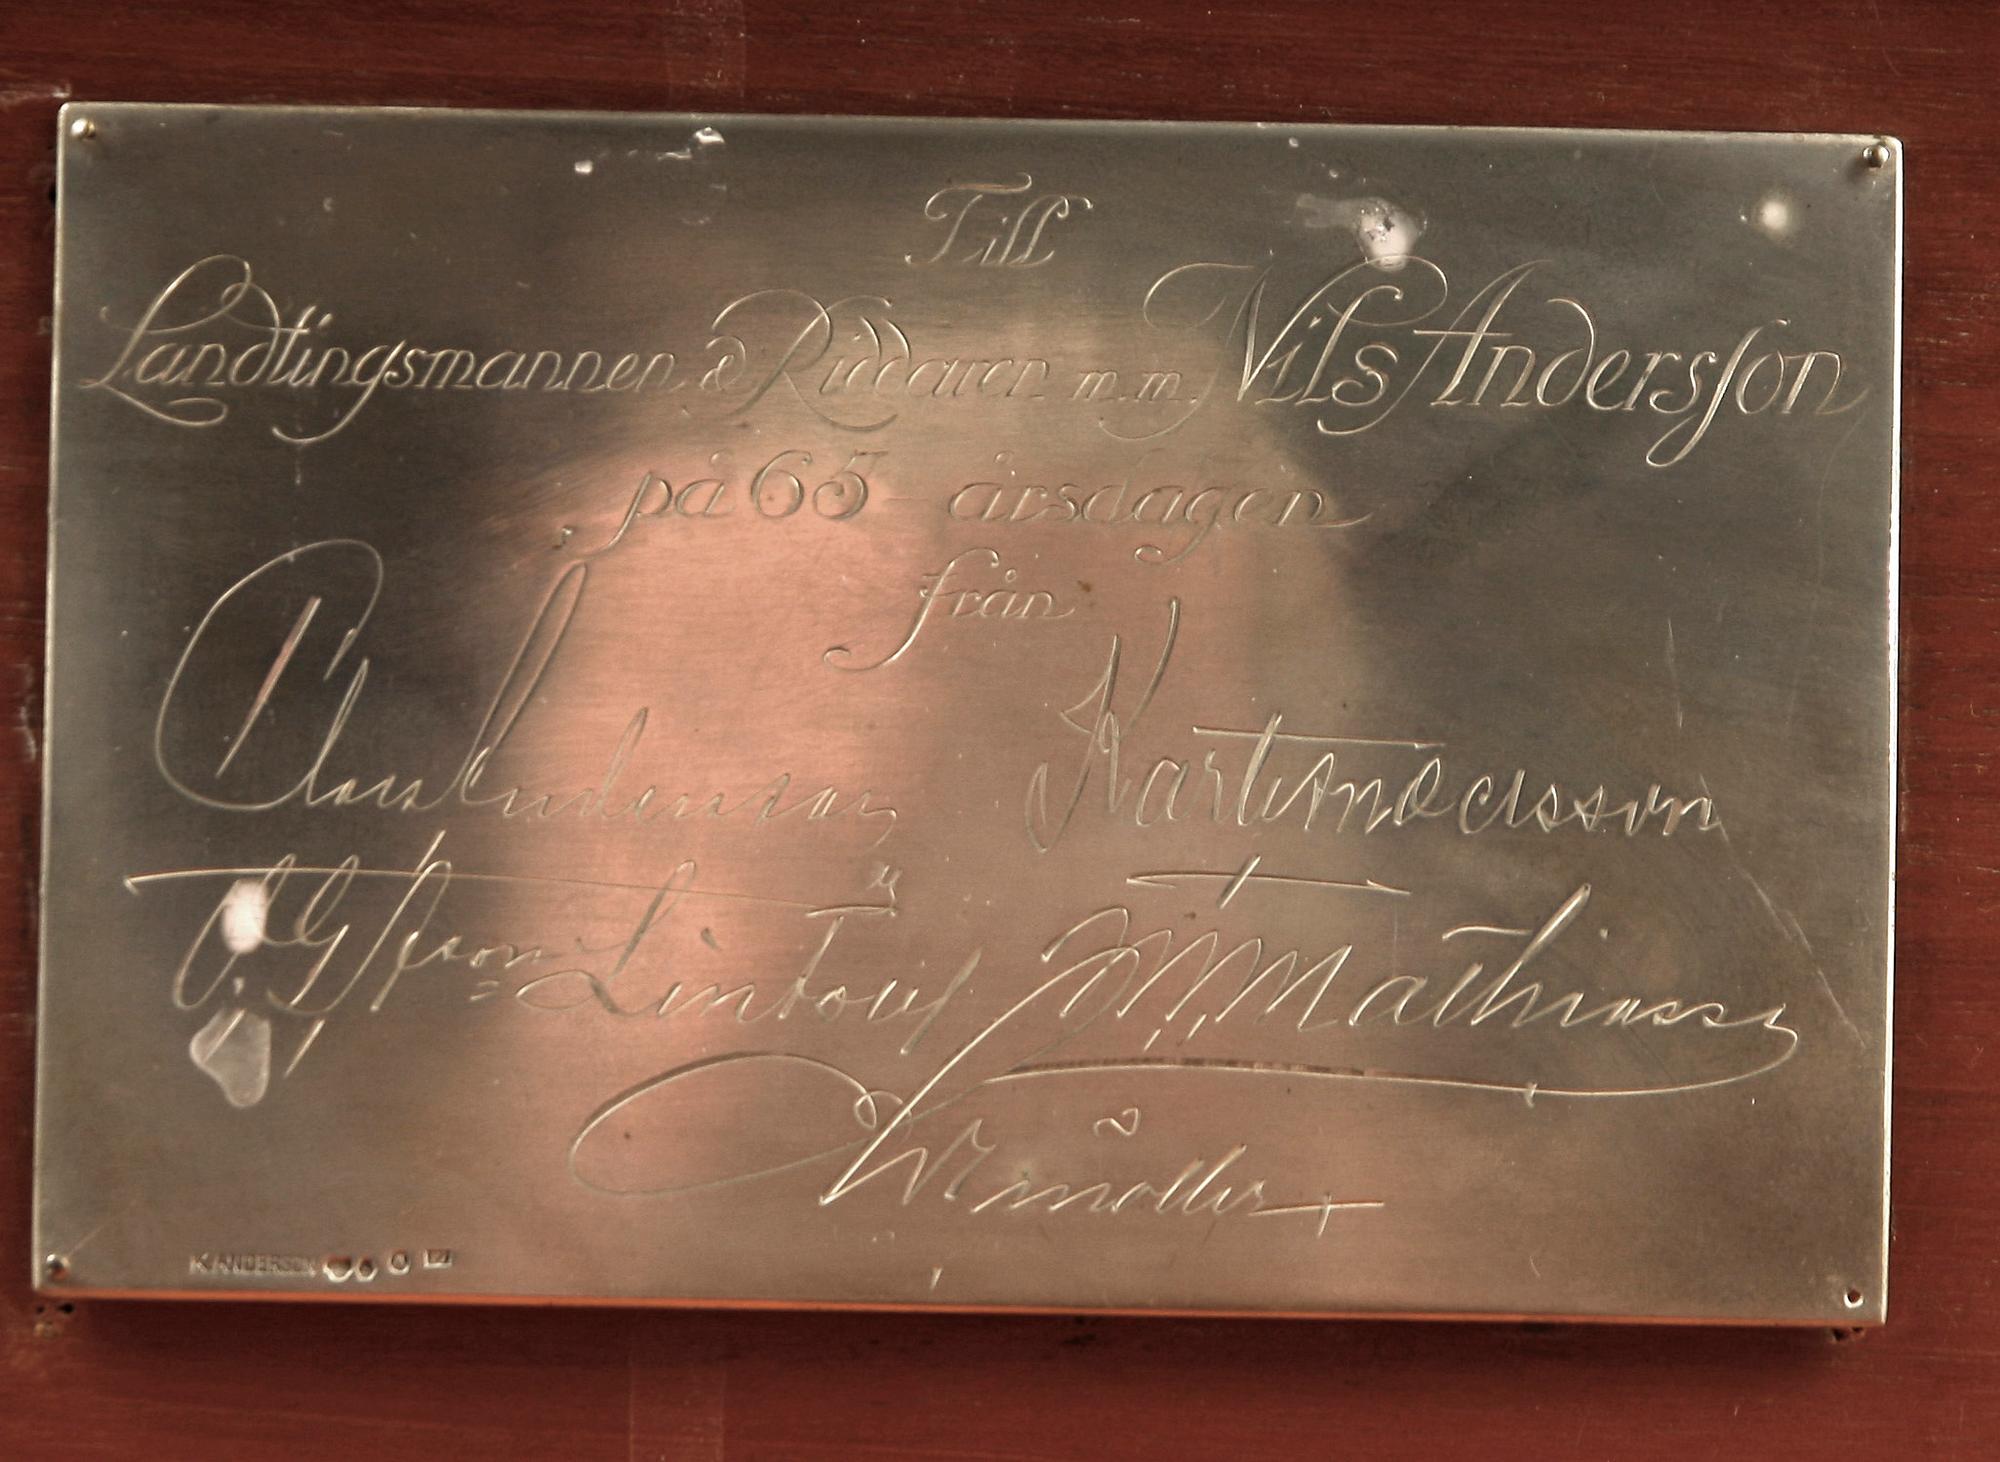 Till
Landtingsmannen & Riddaren m.m. Nils Andersson
på 65-årsdagen
från
Clas Andersson Karl Andersson
Lindorf M. Mathiasson
Möller
K ANDERSON